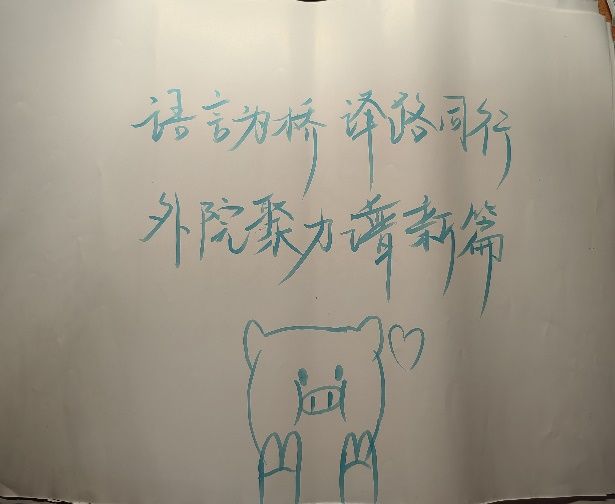 语言为桥 译路同行
外院聚力谱新篇